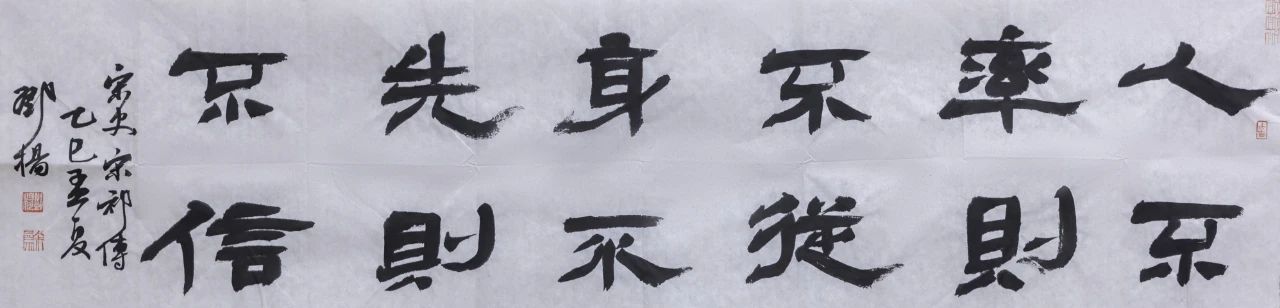 人不
率則
不從
身不
先則
不信
宋史宋祁傳
乙巳孟夏
鄧楊